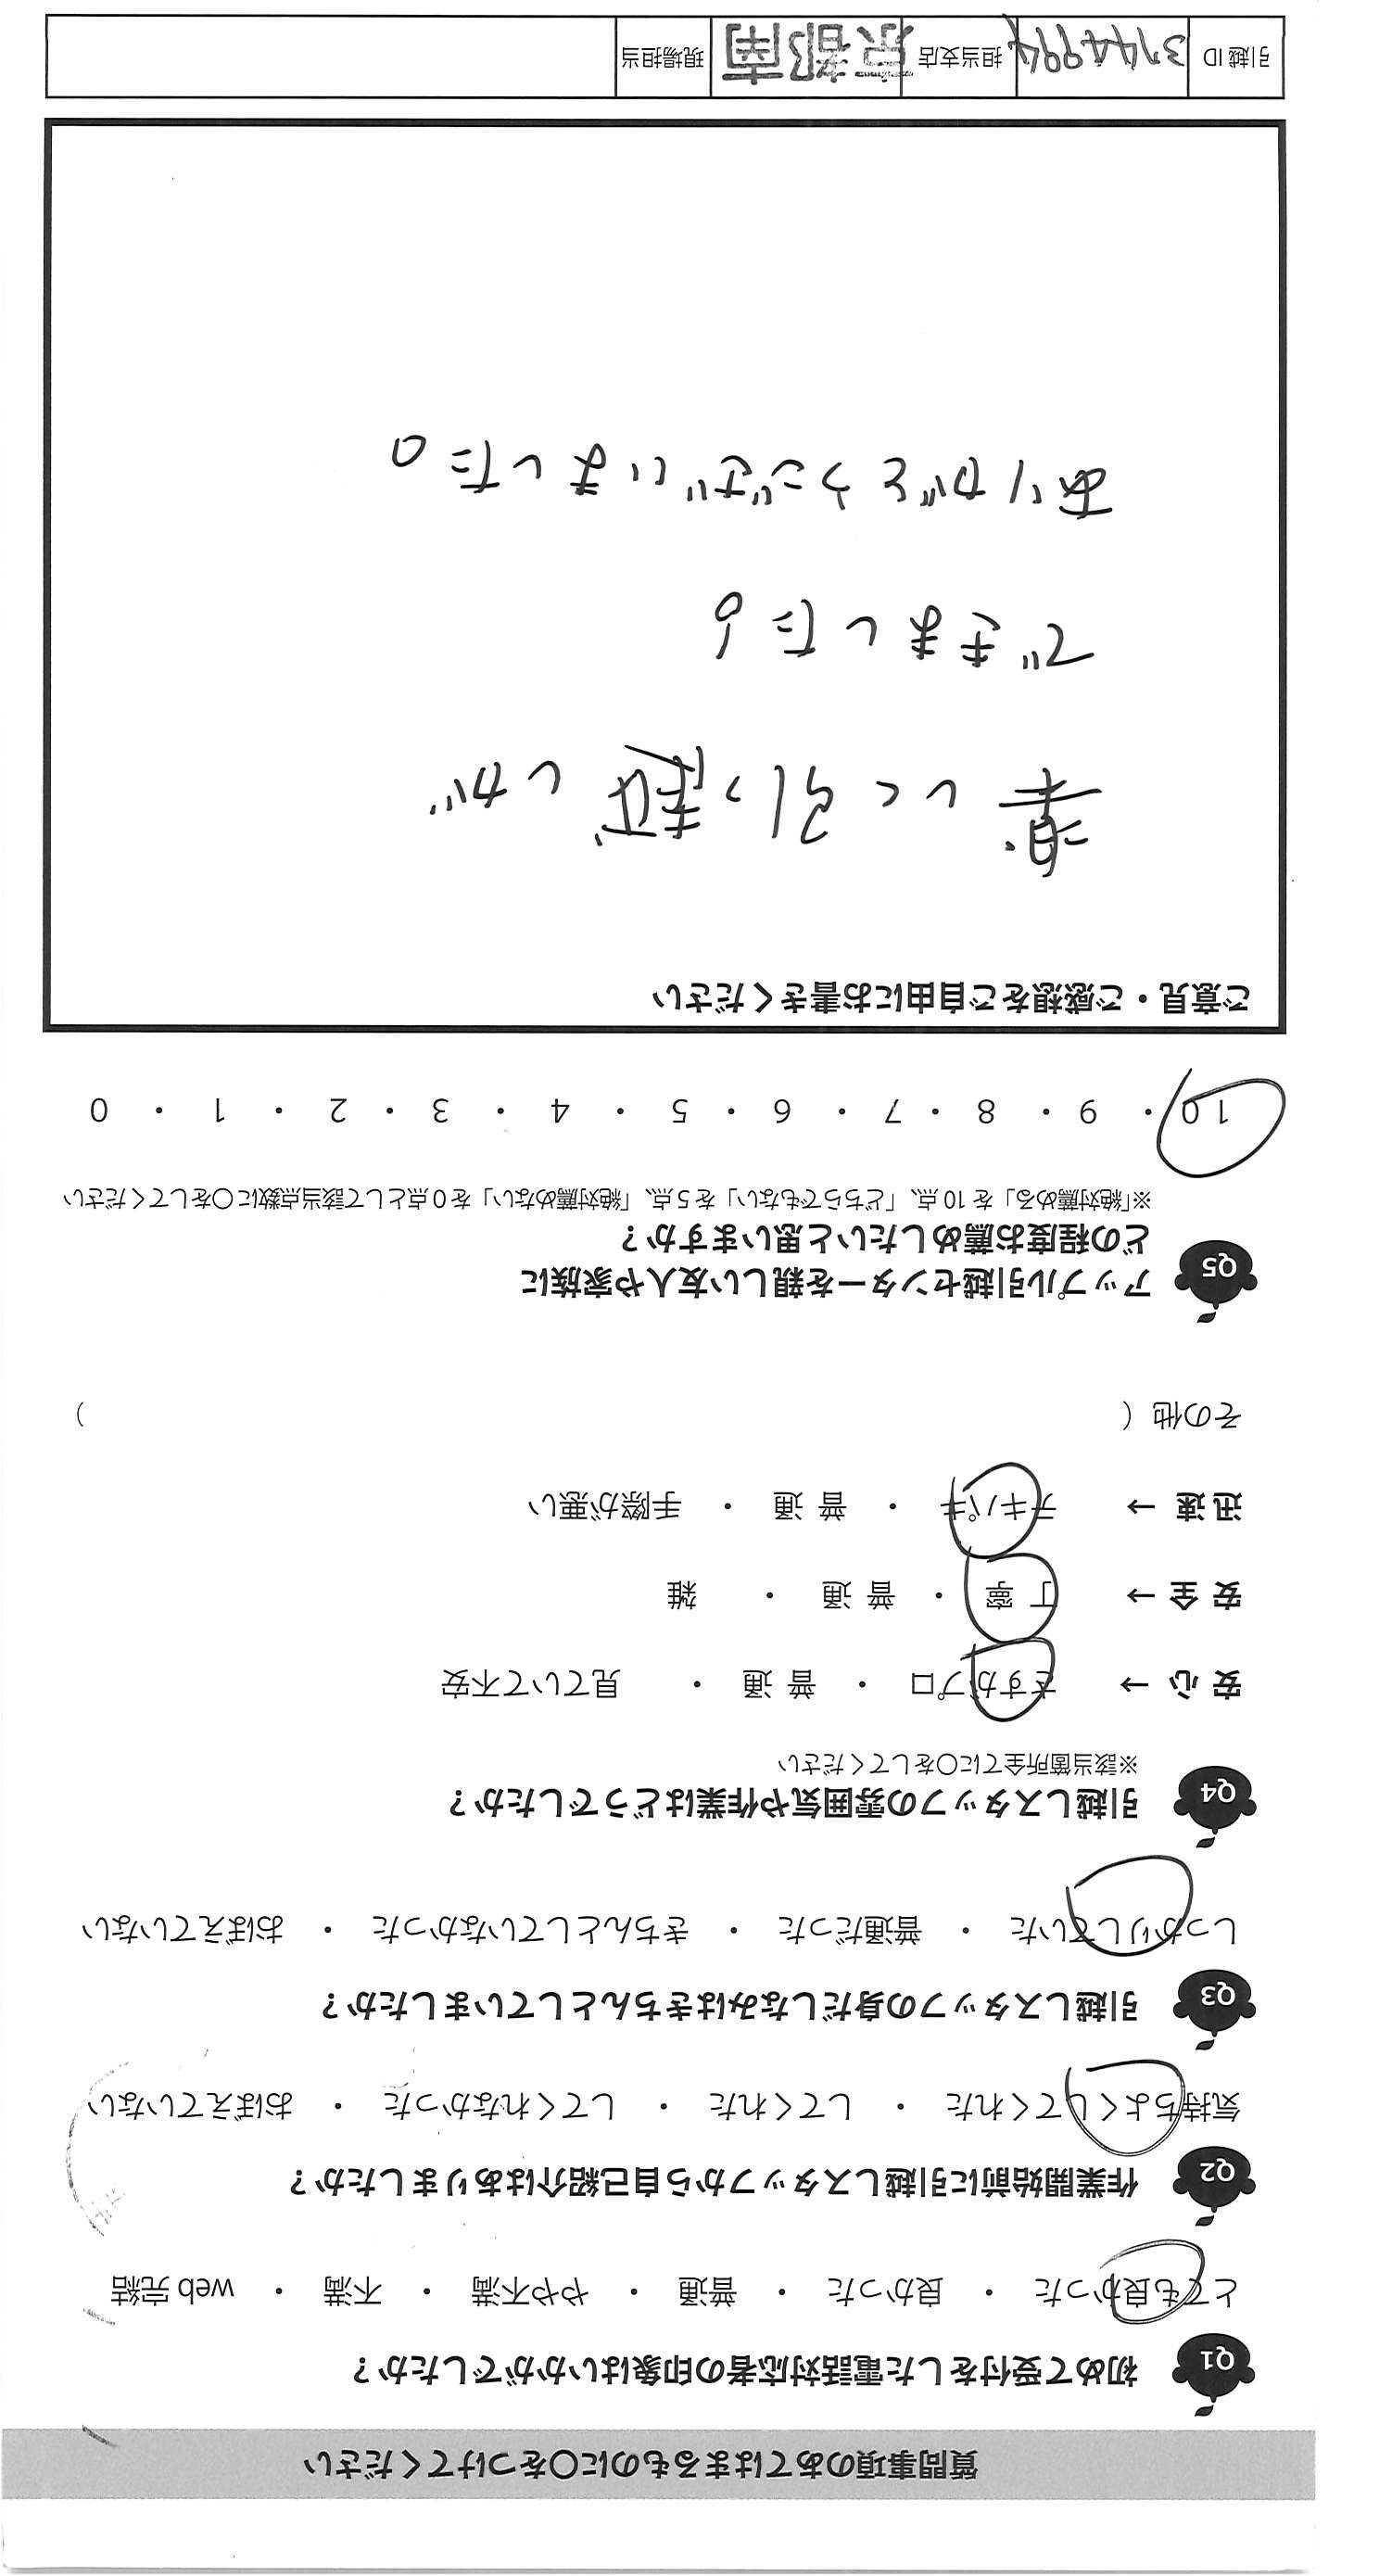 質問事項のあてはまるものに〇をつけてください
Q1 初めて受付をした電話対応者の印象はいかがでしたか？
とても良かった ・ 良かった ・ 普通 ・ やや不満 ・ 不満 ・ web 完結
Q2 作業開始前に引越しスタッフから自己紹介はありましたか？
気持ちよくしてくれた ・ してくれた ・ してくれなかった ・ おぼえていない
Q3 引越しスタッフの身だしなみはきちんとしていましたか？
しっかりしていた ・ 普通だった ・ きちんとしていなかった ・ おぼえていない
Q4 引越しスタッフの雰囲気や作業はどうでしたか？
※該当箇所全てに〇をしてください
安 心 → さすがプロ ・ 普 通 ・ 見ていて不安
安 全 → 丁 寧 ・ 普 通 ・ 雑
迅 速 → テキパキ ・ 普 通 ・ 手際が悪い
その他（ ）
Q5 アップル引越センターを親しい友人や家族に
どの程度お薦めしたいと思いますか？
※「絶対薦める」を 10 点、「どちらでもない」を 5 点、「絶対薦めない」を 0 点として該当点数に〇をしてください
10 ・ 9 ・ 8 ・ 7 ・ 6 ・ 5 ・ 4 ・ 3 ・ 2 ・ 1 ・ 0
ご意見・ご感想をご自由にお書きください
楽しく引っ越しが
できました。
ありがとうございました。
引越 ID 3744994 担当支店 京都南 現場担当